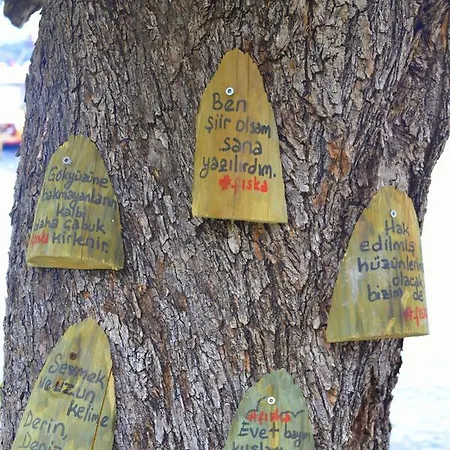 Ben
şiir olsam
sana
yazılırdım.
#fıska
Gökyüzüne
bakmayanların
kalbi
daha çabuk
kirlenir.
Hak
edilmiş
hüzünlerim
olacak
bizim de
#fıska
Sevmek
ne uzun
kelime
Derin,
Deniz
#fıska
Evet bayım
kuşlar